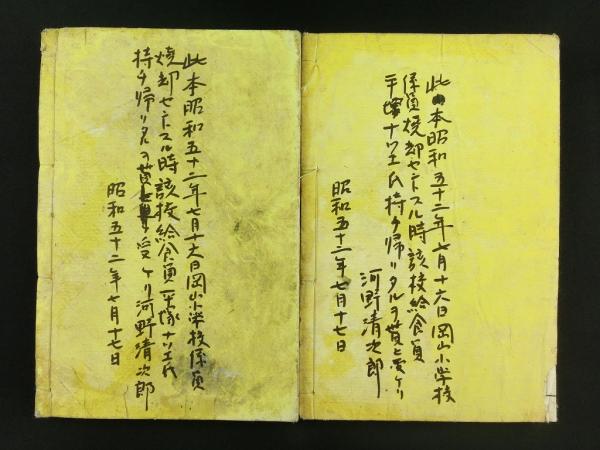 此本昭和五十二年七月十六日岡山小学校
係員焼却セントスル時該校給食員
平塚ナツエ氏持チ帰リタルヲ貰ヒ受ケリ
河野清次郎
昭和五十二年七月十七日
此本昭和五十二年七月十六日岡山小学校係員
焼却セントスル時該校給食員平塚ナツエ氏
持チ帰リタルヲ貰受ケリ河野清次郎
昭和五十二年七月十七日